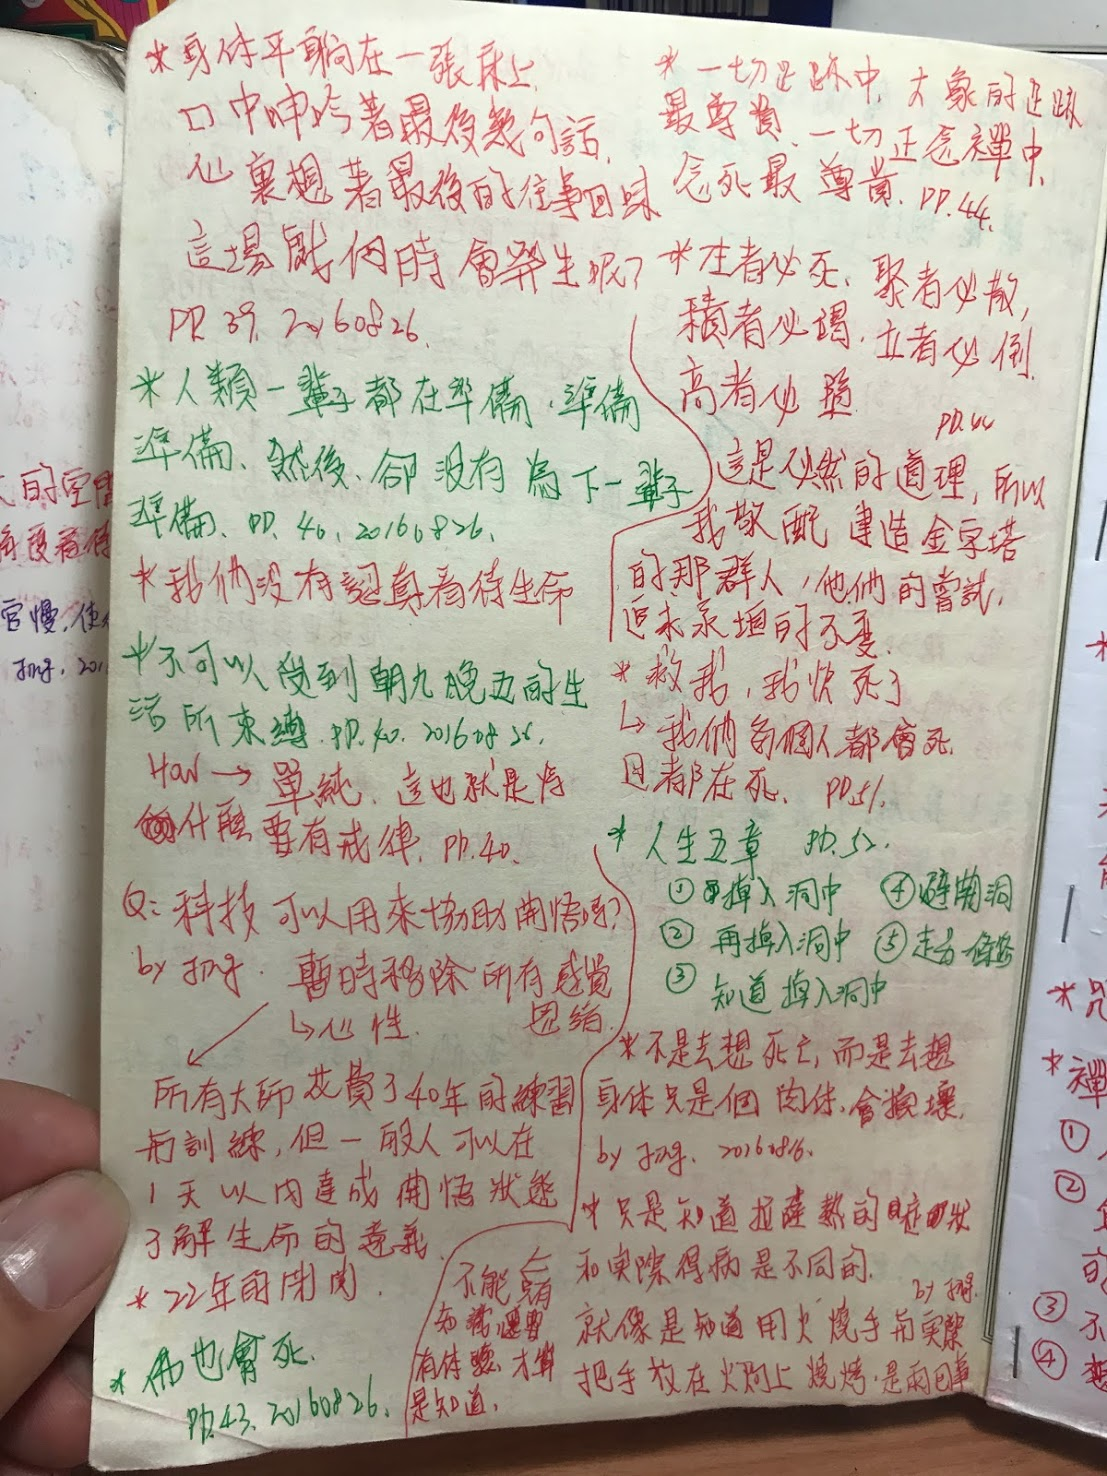 *身体平躺在一張床上
口中呻吟著最後幾句話,
心裏想著最後的往事回味
這場戲何時會發生呢?
PP. 39, 20160826.
*人類一輩子都在準備、準備
準備、然後、卻沒有為下一輩子
準備. PP. 40, 20160826.
*我們沒有認真看待生命
*不可以受到朝九晚五的生
活所束縛. PP. 40. 20160826.
How → 單純. 這也就是為
什麼要有戒律. PP. 40.
Q: 科技可以用來協助開悟嗎?
by 暫時移除所有感覺
思緒.
↳心性.
所有大師花費了40年的練習
和訓練, 但一般人可以在
1天以内達成開悟狀態
了解生命的意義.
*22年的閉関.
*佛也會死.
PP. 43, 20160826.
*一切足跡中, 大象的足跡
最尊貴. 一切正念禪中,
念死最尊貴. PP. 44.
*生者必死、聚者必散,
積者必竭. 立者必倒.
高者必墮.
PP. 44
這是必然的道理, 所以
我敬配建造金字塔
的那群人, 他們的嘗試,
追求永垣的不變.
*救我, 我快死了
↳我們每個人都會死
且都在死. PP. 51.
*人生五章 PP. 52.
① 掉入洞中 ④避開洞
② 再掉入洞中 ⑤走另一條路
③ 知道掉入洞中
*不是去想死亡, 而是去想
身体只是個肉体, 會損壞.
by 2016.0816.
*只是知道拉薩熱的症狀
和実際得病是不同的.
by
就像是知道用火燒手和実際
把手放在火焰上燒烤. 是兩回事
不能只有
知識, 還要
有体驗, 才算
是知道.
的空間
官慢, 使
201
*
*
*禪
①
②
③ 不
④ 想